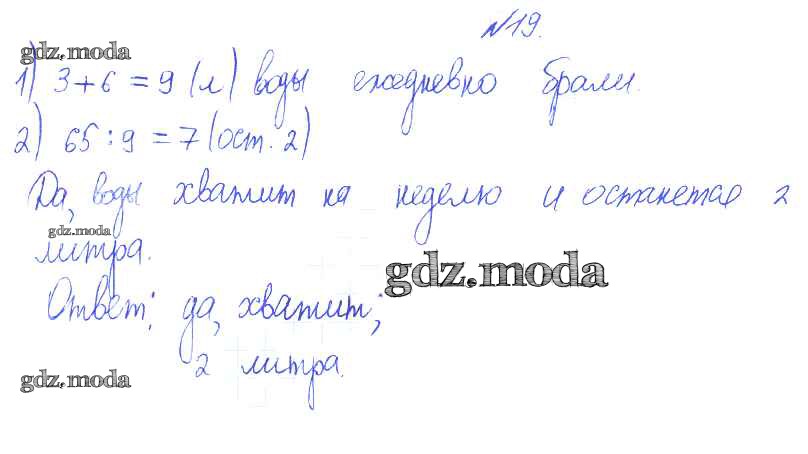 №19.
gdz.moda
1) 3+6=9 (л) воды ежедневно брали.
2) 65:9=7 (ост. 2)
Да, воды хватит на неделю и останется 2
gdz.moda
литра.
gdz.moda
Ответ: да, хватит;
2 литра.
gdz.moda